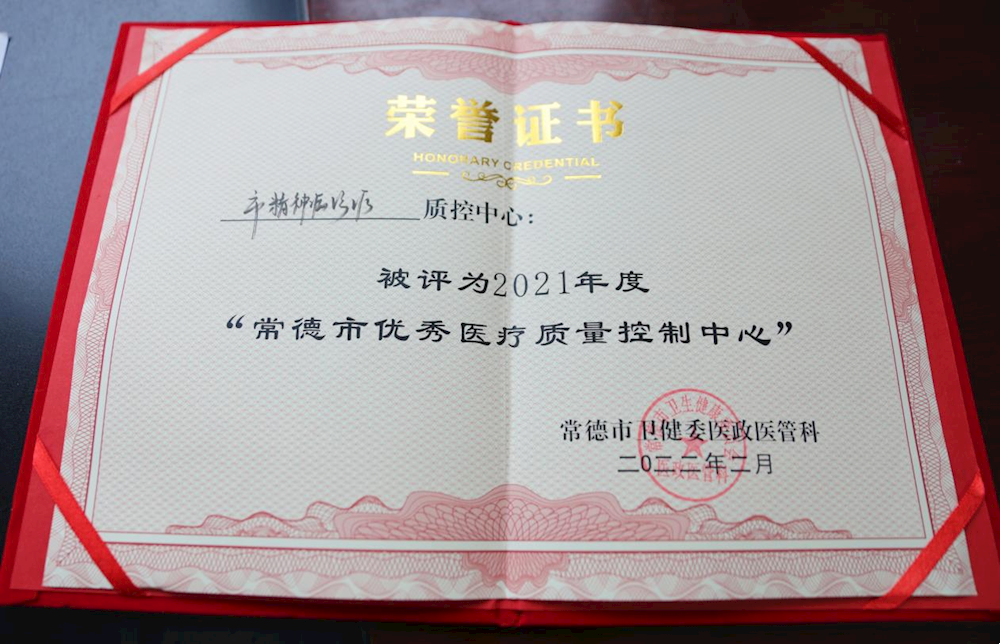 荣誉证书
HONORARY CREDENTIAL
市精神病诊疗质控中心：
被评为2021年度
“常德市优秀医疗质量控制中心”
常德市卫健委医政医管科
二〇二二年二月
常德市卫生健康委员会
医政医管科